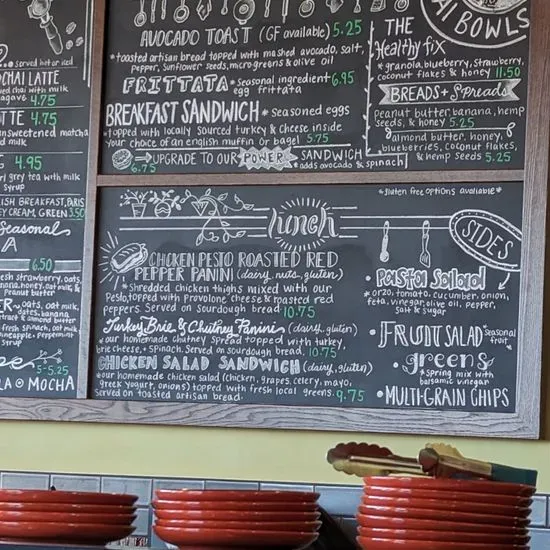 served hot or iced
CHAI LATTE
chai with milk
agave 4.75
TTE 4.75
unsweetened matcha
d milk
G 4.95
rl grey tea with milk
syrup
ISH BREAKFAST, PARIS
EY CREAM, GREEN 3.50
Seasonal
A
6.50
esh strawberry, oats,
Peanut butter
ER oats, oat milk,
dates, banana
tract & almond butter
fresh spinach, oat milk,
pineapple, peppermint
syrup
5-5.25
LA MOCHA
AVOCADO TOAST (GF available) 5.25
*toasted artisan bread topped with mashed avocado, salt,
pepper, sunflower seeds, microgreens & olive oil
FRITTATA *Seasonal ingredient 6.95
egg frittata
BREAKFAST SANDWICH *Seasoned eggs
*topped with locally sourced turkey & cheese inside
your choice of an english muffin or bagel 5.75
UPGRADE TO OUR POWER SANDWICH
6.75 *adds avocado & spinach
AI BOWLS
THE
Healthy fix
*granola, blueberry, strawberry,
coconut flakes & honey 11.50
BREADS + Spreads
Peanut butter, banana, hemp
seeds, & honey 5.25
almond butter, honey,
blueberries, coconut flakes,
& hemp seeds 5.25
*gluten free options available*
lunch
CHICKEN PESTO ROASTED RED
PEPPER PANINI (dairy, nuts, gluten)
*Shredded chicken thighs mixed with our
Pesto, topped with Provolone cheese & roasted red
peppers. Served on Sourdough bread 10.75
Turkey Brie & Chutney Panini (dairy, gluten)
*our homemade chutney spread topped with turkey,
brie cheese, + spinach. Served on sourdough bread. 10.75
CHICKEN SALAD SANDWICH (dairy, gluten)
*our homemade chicken salad (chicken, grapes, celery, mayo,
greek yogurt, onions) topped with fresh local greens. 9.75
Served on toasted artisan bread.
SIDES
Pasta Salad
*orzo, tomato, cucumber, onion,
feta, vinegar, olive oil, pepper,
salt & sugar
•FRUIT SALAD *Seasonal
fruit
•greens
*spring mix with
balsamic vinegar
•MULTI-GRAIN CHIPS